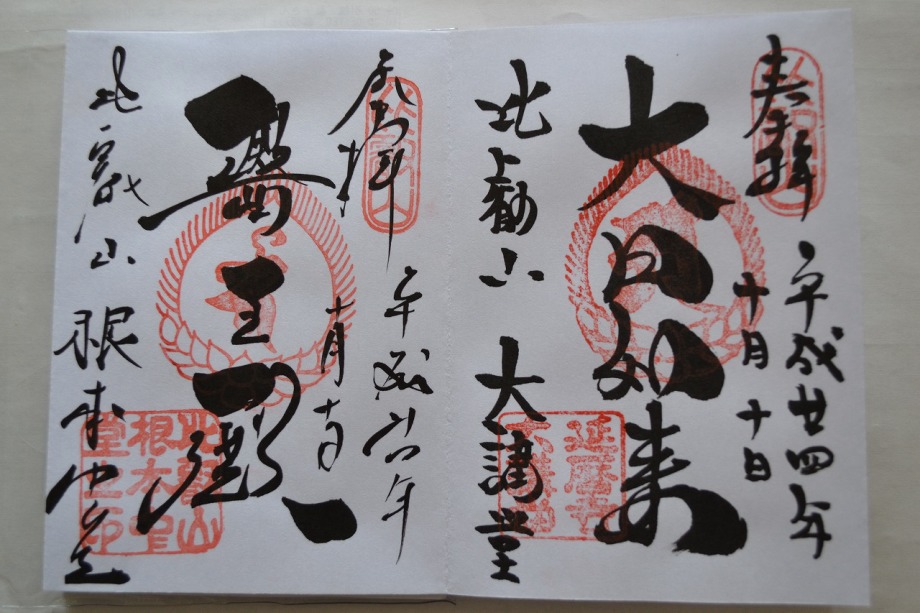 奉拝
平成廿四年
十月十日
大日如来
比叡山 大講堂
延暦寺
奉拝
平成廿四年
十月十日
醫王殿
比叡山 根本中堂
比叡山
根本中
堂之印